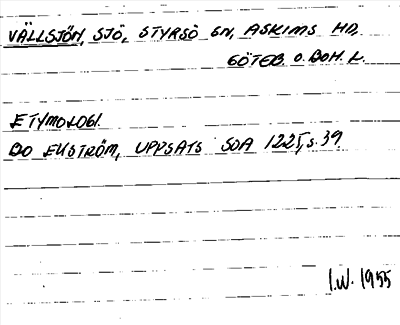 VÄLLSJÖN, SJÖ, STYRSÖ SN, ASKIMS HD,
GÖTEB. O. BOH. L.
ETYMOLOGI.
BO EKSTRÖM, UPPSATS SOA 1225, s. 39
I.W. 1955